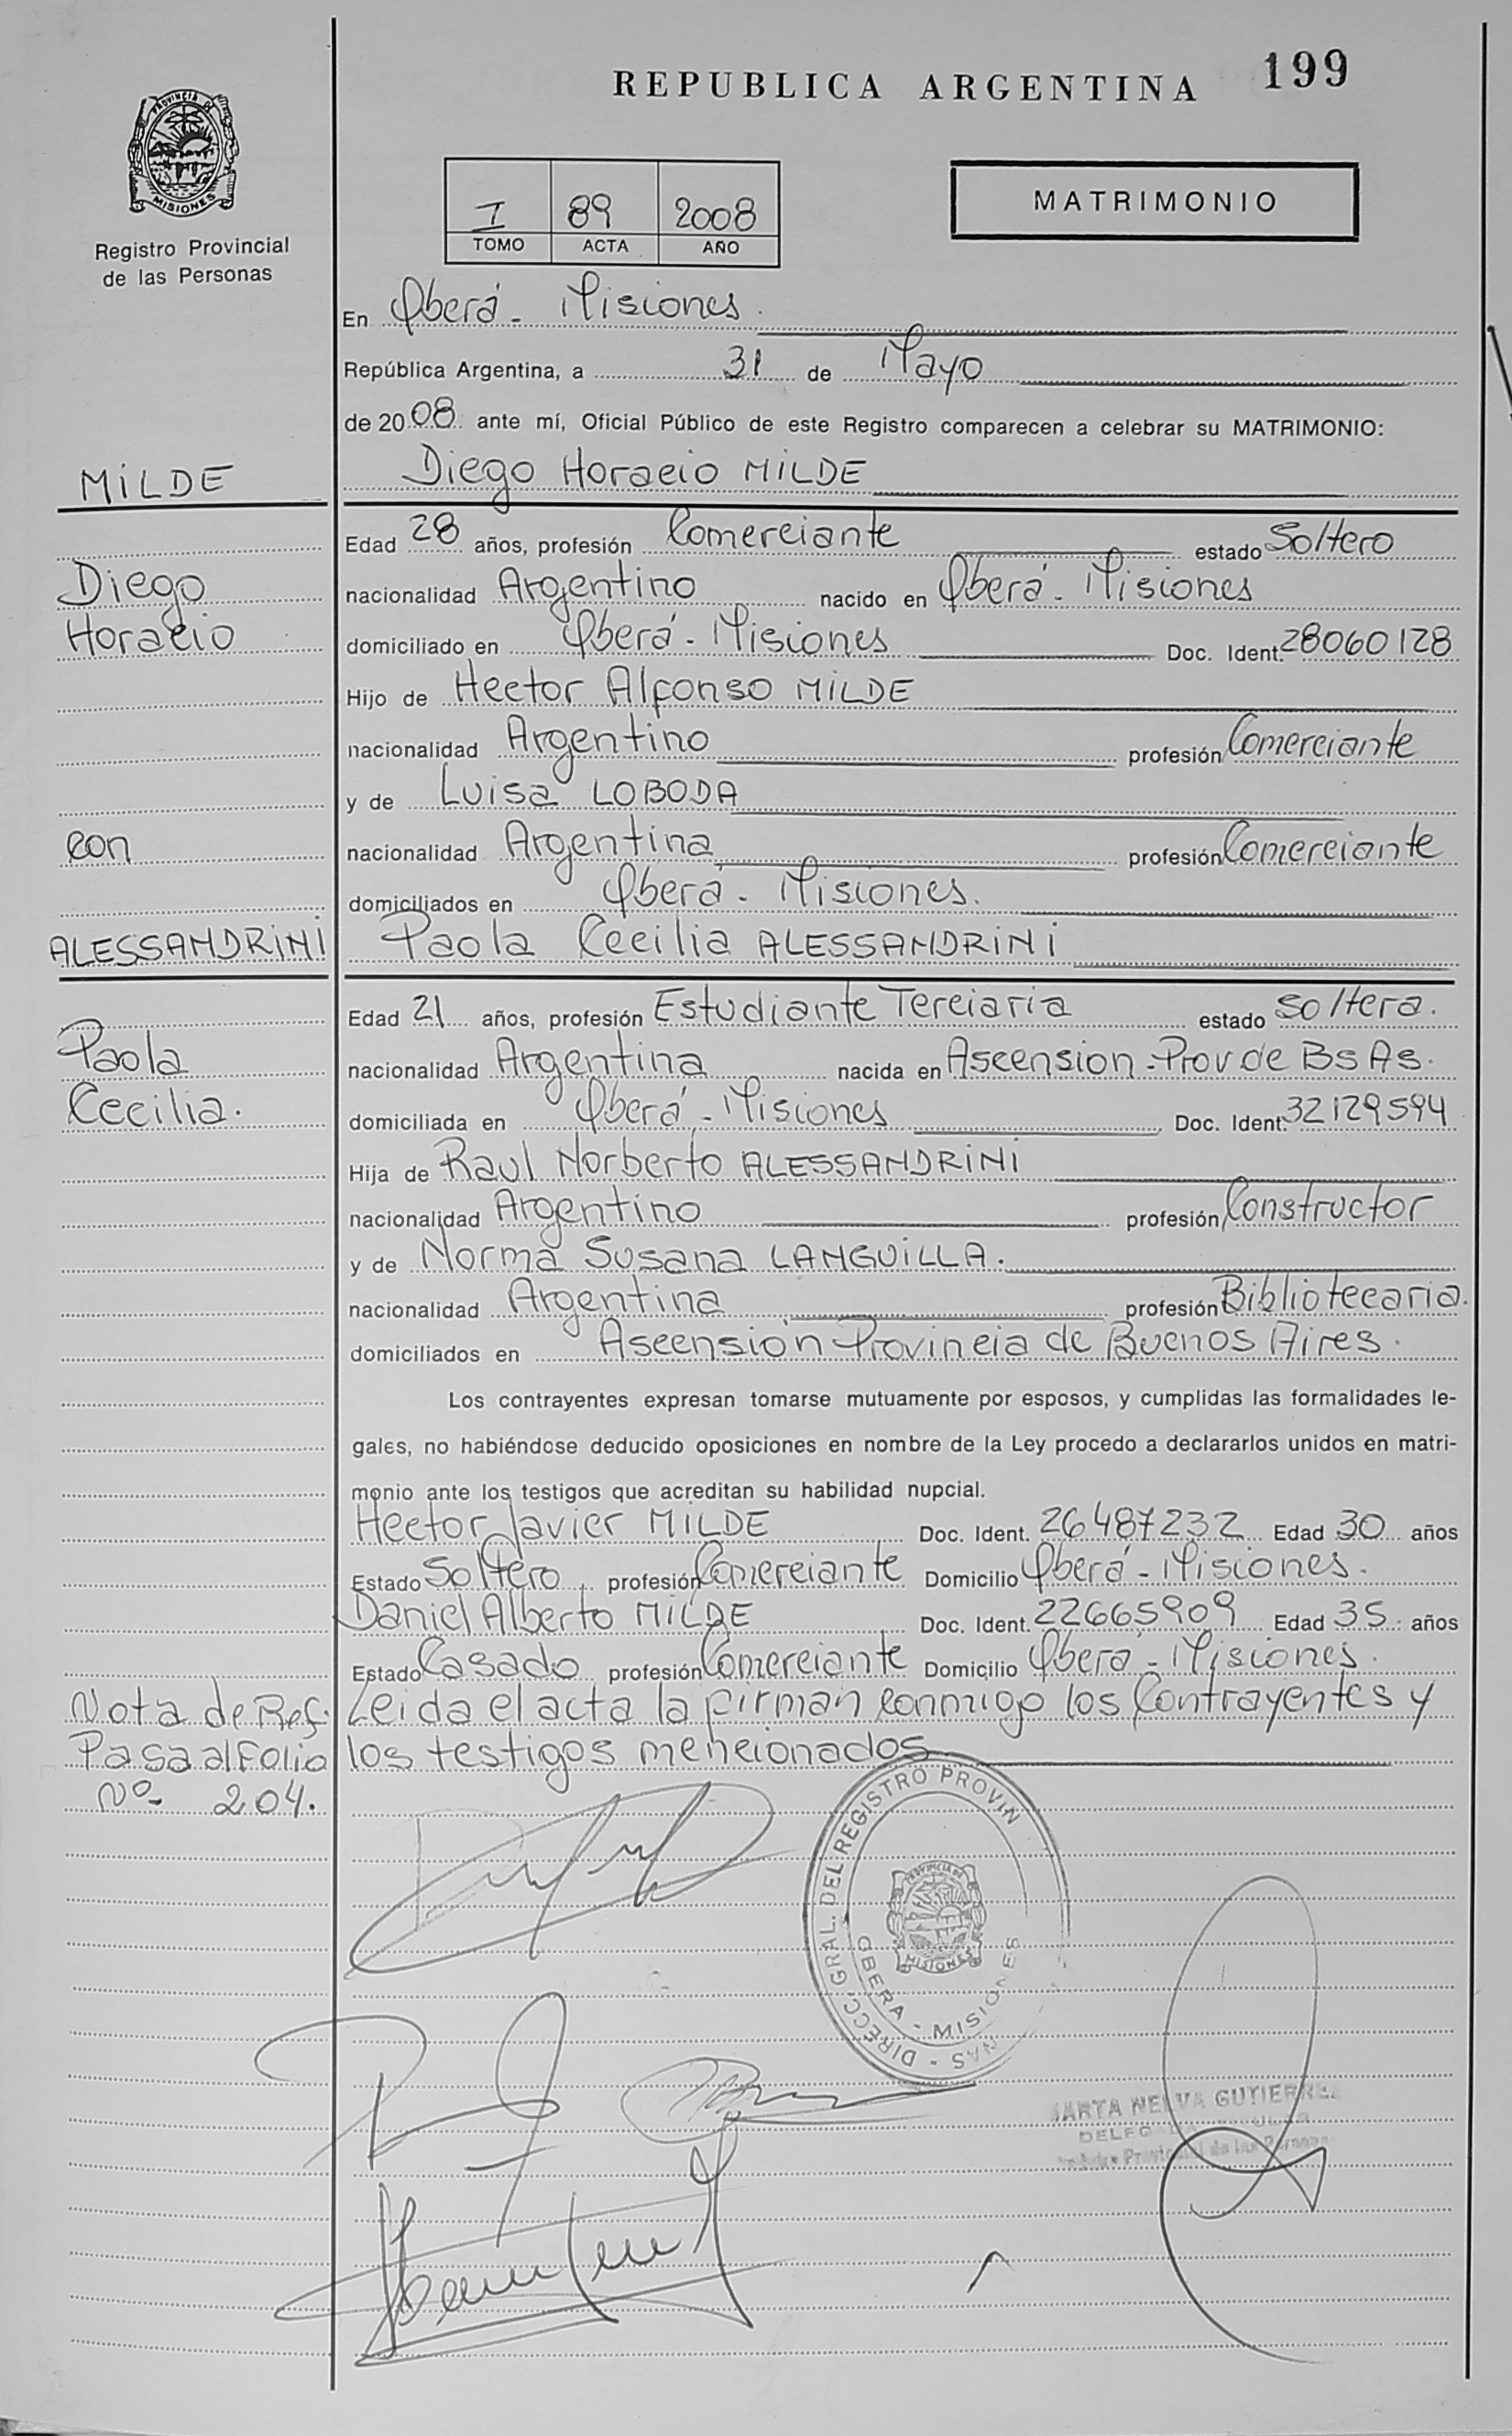 REPUBLICA ARGENTINA 199
PROVINCIA DE
MISIONES
Registro Provincial
de las Personas
I 89 2008
TOMO ACTA AÑO
MATRIMONIO
En Oberá - Misiones.
República Argentina, a 31 de Mayo
de 2008 ante mí, Oficial Público de este Registro comparecen a celebrar su MATRIMONIO:
MILDE
Diego Horacio MILDE
Edad 28 años, profesión Comerciante estado Soltero
Diego
nacionalidad Argentino nacido en Oberá - Misiones
Horacio
domiciliado en Oberá - Misiones Doc. Ident. 28060128
Hijo de Hector Alfonso MILDE
nacionalidad Argentino profesión Comerciante
y de Luisa LOBODA
con
nacionalidad Argentina profesión Comerciante
domiciliados en Oberá - Misiones.
ALESSANDRINI
Paola Cecilia ALESSANDRINI
Edad 21 años, profesión Estudiante Terciaria estado Soltera.
Paola
nacionalidad Argentina nacida en Ascension - Prov de Bs As.
Cecilia.
domiciliada en Oberá - Misiones Doc. Ident. 32129594
Hija de Raul Norberto ALESSANDRINI
nacionalidad Argentino profesión Constructor
y de Norma Susana LANGUILLA.
nacionalidad Argentina profesión Bibliotecaria.
domiciliados en Ascensión Provincia de Buenos Aires.
Los contrayentes expresan tomarse mutuamente por esposos, y cumplidas las formalidades le-
gales, no habiéndose deducido oposiciones en nombre de la Ley procedo a declararlos unidos en matri-
monio ante los testigos que acreditan su habilidad nupcial.
Hector Javier MILDE Doc. Ident. 26487232 Edad 30 años
Estado Soltero profesión Comerciante Domicilio Oberá - Misiones.
Daniel Alberto MILDE Doc. Ident. 22665909 Edad 35 años
Estado Casado profesión Comerciante Domicilio Oberá - Misiones.
Nota de Ref.
Pasa al Folio
Nº 204.
Leida el acta la firman conmigo los Contrayentes y
los testigos mencionados
DIRECC. GRAL. DEL REGISTRO PROVIN
NAS
PROVINCIA DE
MISIONES
OBERA - MISIONES
MARTA NELVA GUTIERREZ
de las Personas